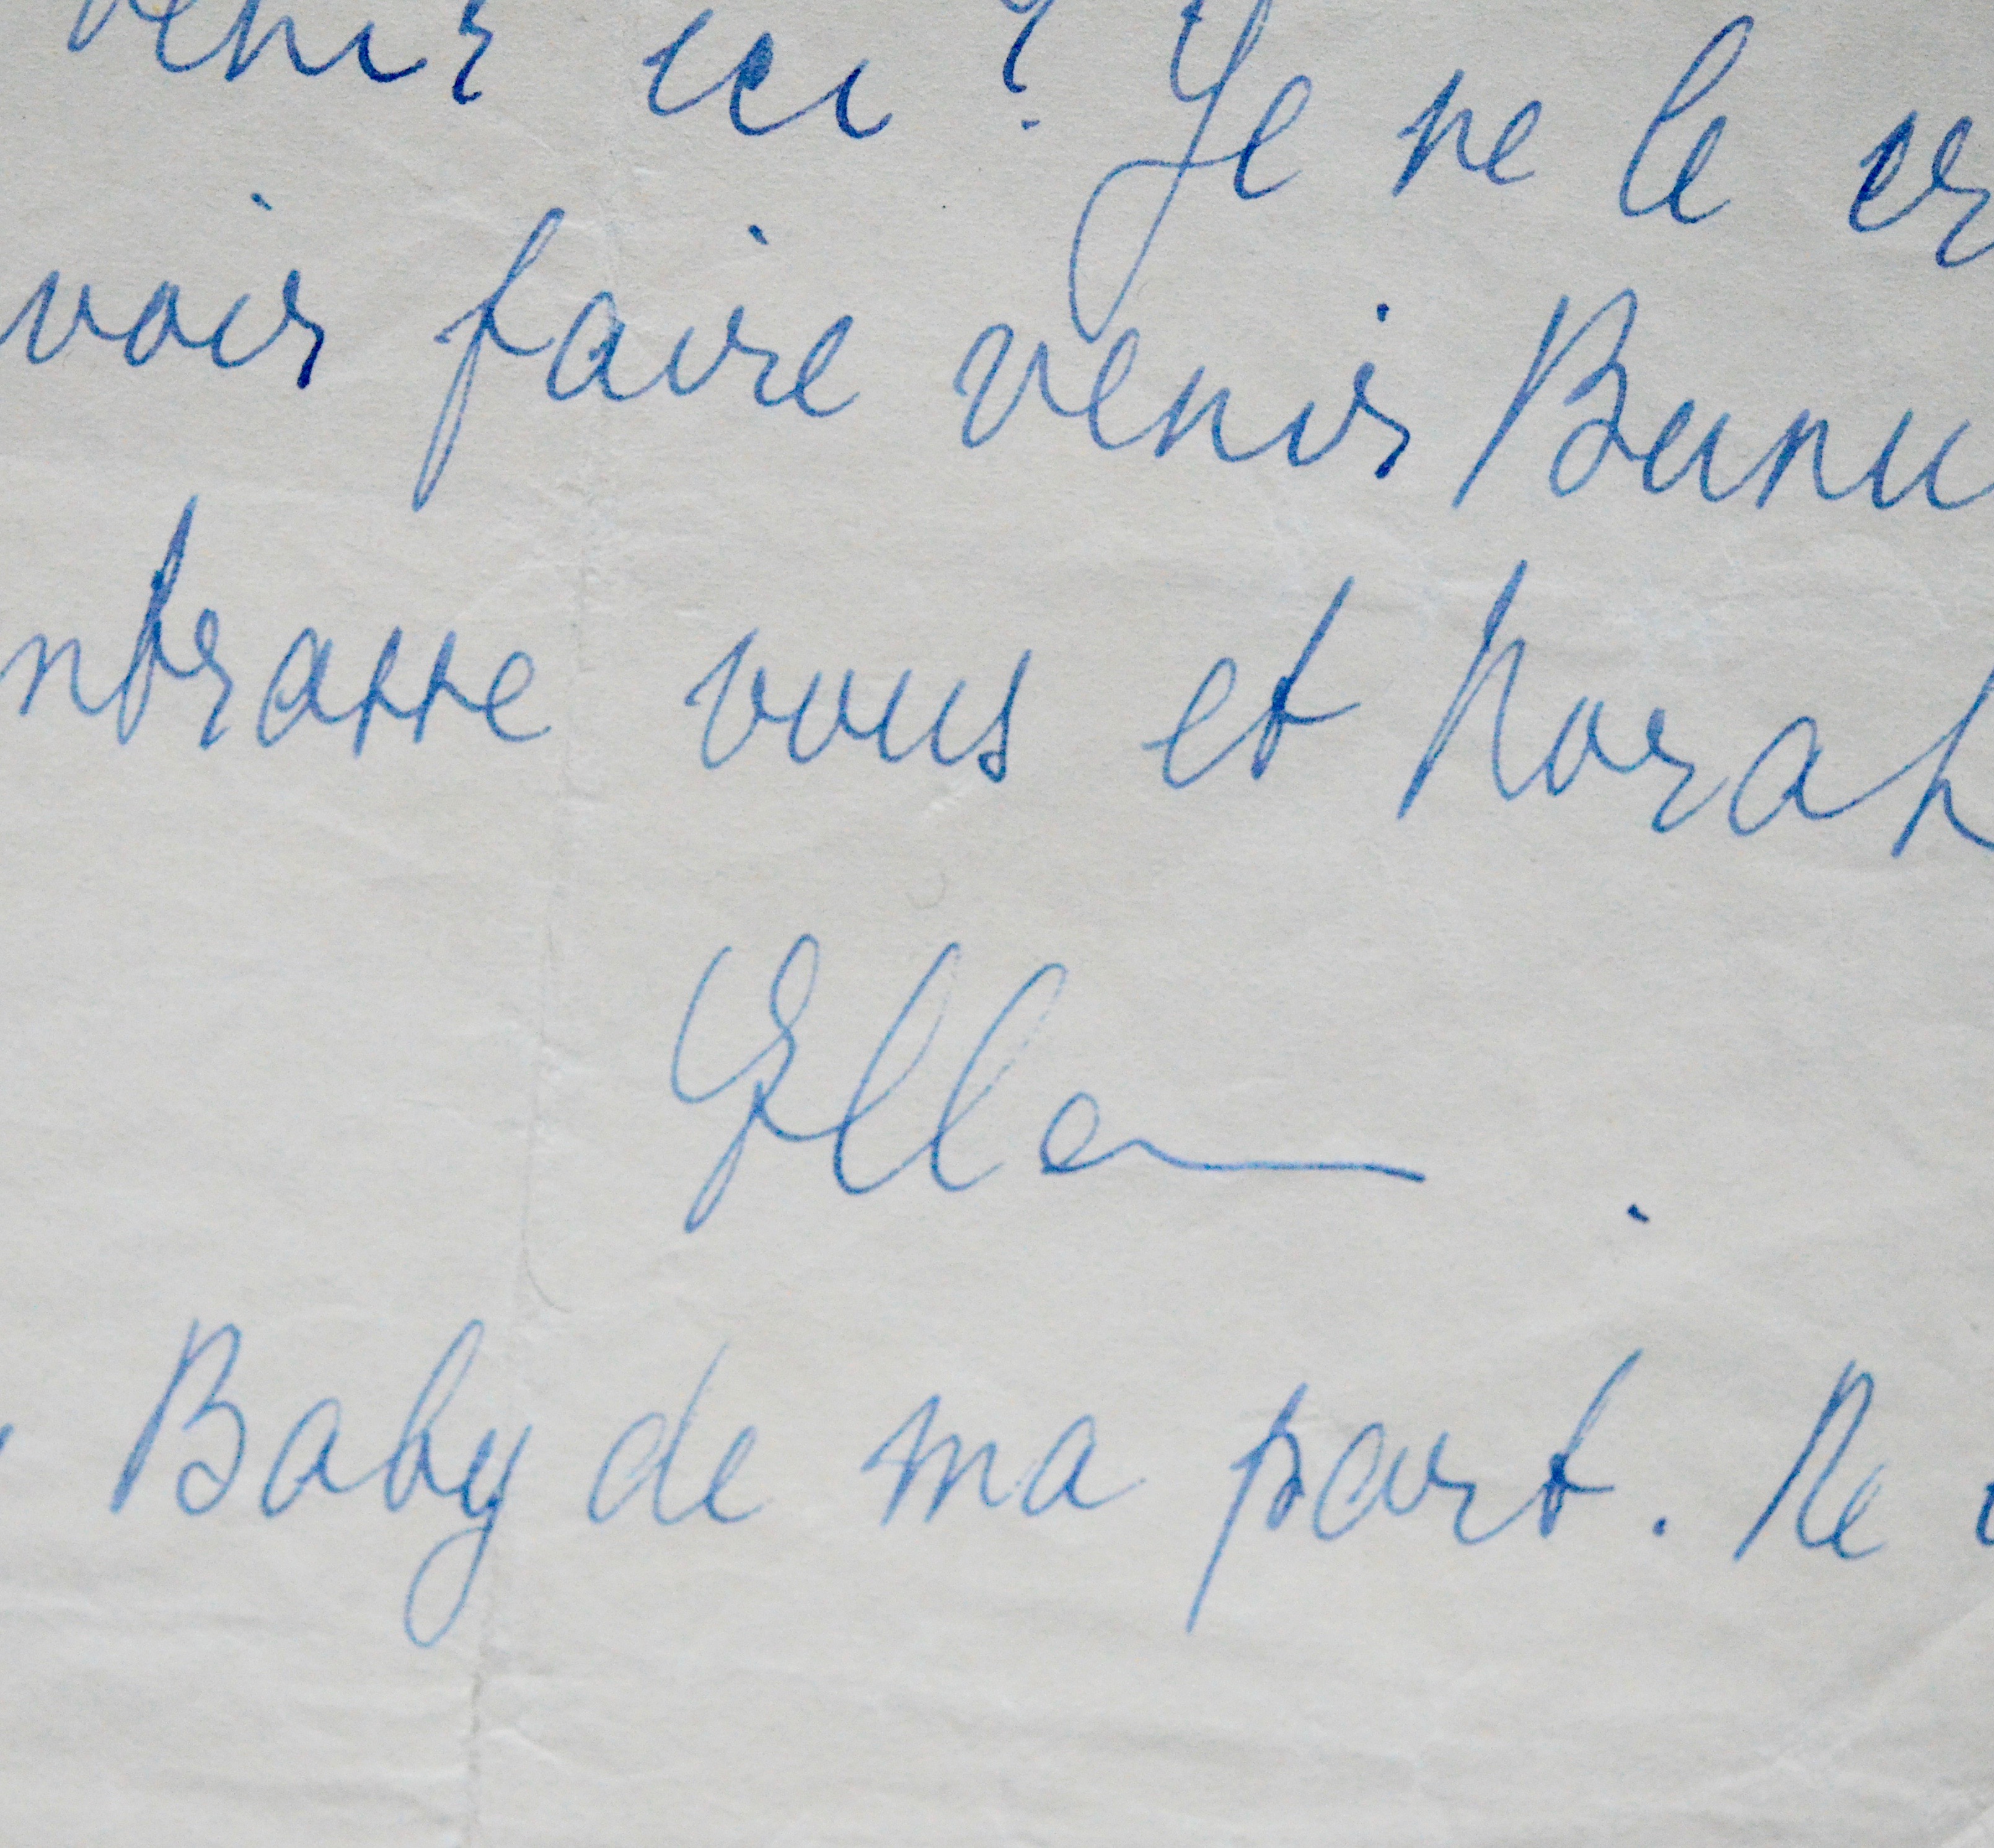 venir ici ? Je ne le cr
voir faire venir Bunu
mbrasse vous et Norah
Ella
Baby de ma part. Ne